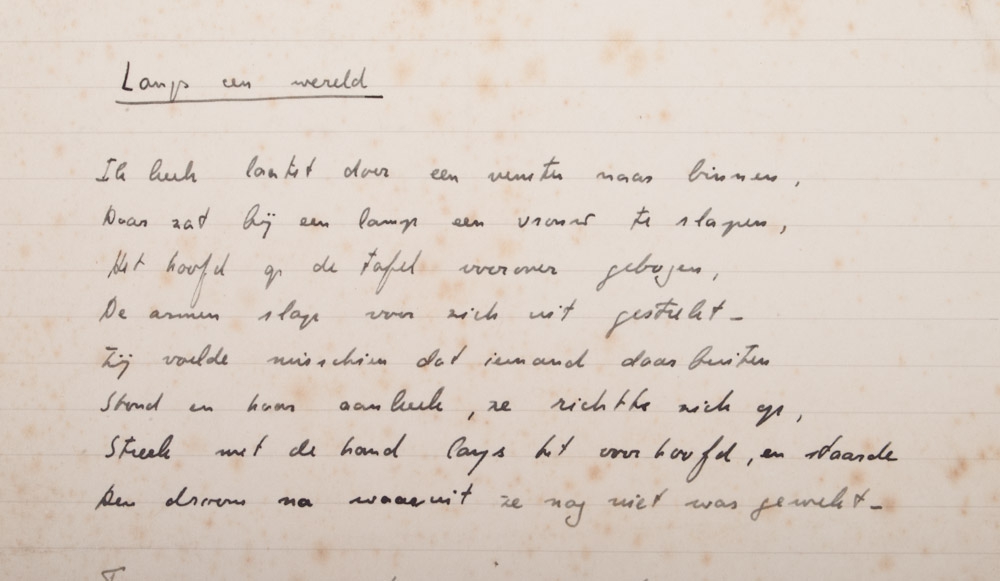 Langs een wereld
Ik keek laatst door een venster naar binnen,
Daar zat bij een lamp een vrouw te slapen,
Het hoofd op de tafel voorover gebogen,
De armen slap voor zich uit gestrekt –
Zij voelde misschien dat iemand daar buiten
Stond en haar aankeek, ze richtte zich op,
Streek met de hand langs het voorhoofd, en staarde
Den droom na waaruit ze nog niet was gewekt –